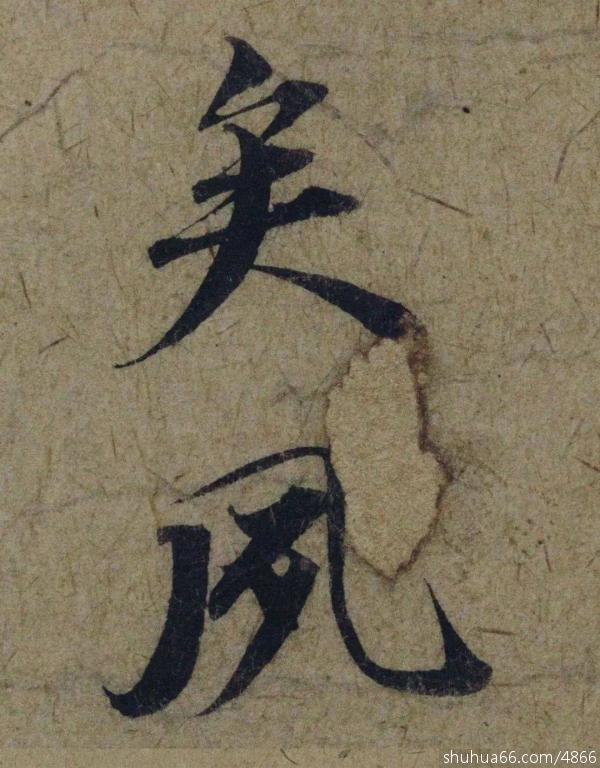 矣夙
shuhua66.com/4866